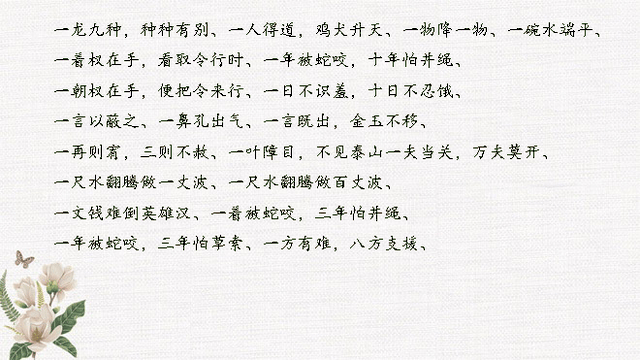 一龙九种，种种有别、一人得道，鸡犬升天、一物降一物、一碗水端平、
一着权在手，看取令行时、一年被蛇咬，十年怕井绳、
一朝权在手，便把令来行、一日不识羞，十日不忍饿、
一言以蔽之、一鼻孔出气、一言既出，金玉不移、
一再则宥，三则不赦、一叶障目，不见泰山一夫当关，万夫莫开、
一尺水翻腾做一丈波、一尺水翻腾做百丈波、
一文钱难倒英雄汉、一着被蛇咬，三年怕井绳、
一年被蛇咬，三年怕草索、一方有难，八方支援、